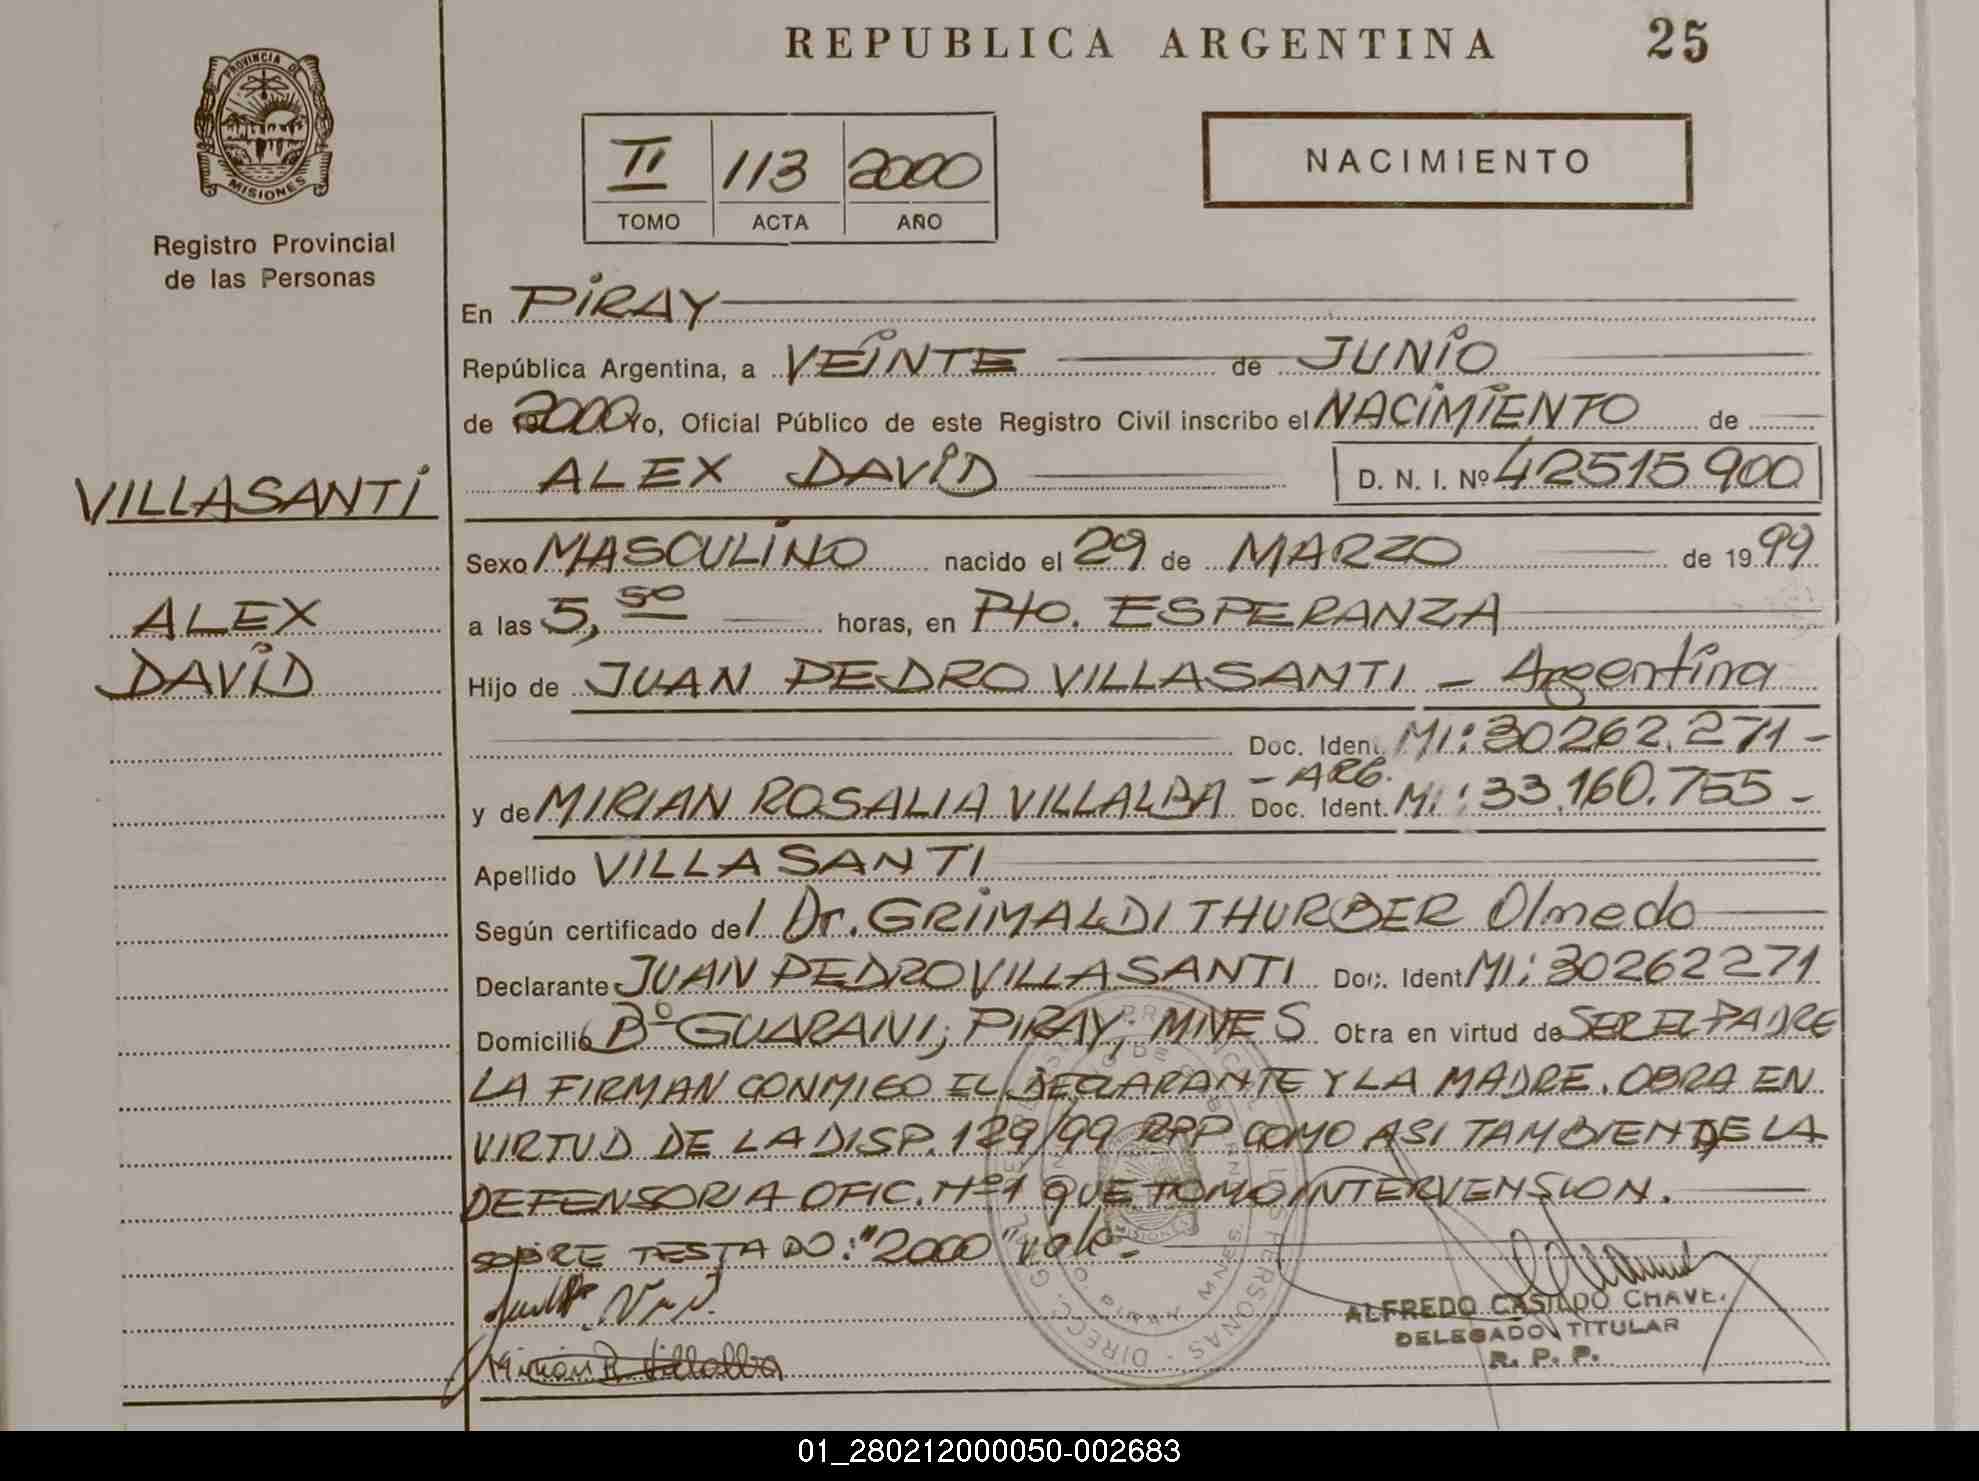 REPUBLICA ARGENTINA 25
PROVINCIA DE
MISIONES
Registro Provincial
de las Personas
II 113 2000
TOMO ACTA AÑO
NACIMIENTO
En PIRAY
República Argentina, a VEINTE de JUNIO
de 2000 Yo, Oficial Público de este Registro Civil inscribo el NACIMIENTO de
ALEX DAVID D. N. I. Nº 42515900
VILLASANTI
Sexo MASCULINO nacido el 29 de MARZO de 1999
ALEX
a las 5,50 horas, en Pto. ESPERANZA
DAVID
Hijo de JUAN PEDRO VILLASANTI - Argentina
Doc. Ident. MI: 30262.271-
- ARG.
y de MIRIAN ROSALIA VILLALBA Doc. Ident. MI: 33.160.755-
Apellido VILLASANTI
Según certificado del Dr. GRIMALDI THURBER Olmedo
Declarante JUAN PEDRO VILLASANTI Doc. Ident MI: 30262271
Domicilio Bº GUARANI; PIRAY; MNES Otra en virtud de SER EL PADRE
LA FIRMAN CONMIGO EL DECLARANTE Y LA MADRE. OBRA EN
VIRTUD DE LA DISP. 129/99 RPP COMO ASI TAMBIEN DE LA
DEFENSORIA OFIC. Nº1 QUE TOMO INTERVENSION.
SOBRE TESTADO: "2000" vale-
Mirian R Villalba
ALFREDO CASILDO CHAVE.
DELEGADO TITULAR
R. P. P.
01_280212000050-002683